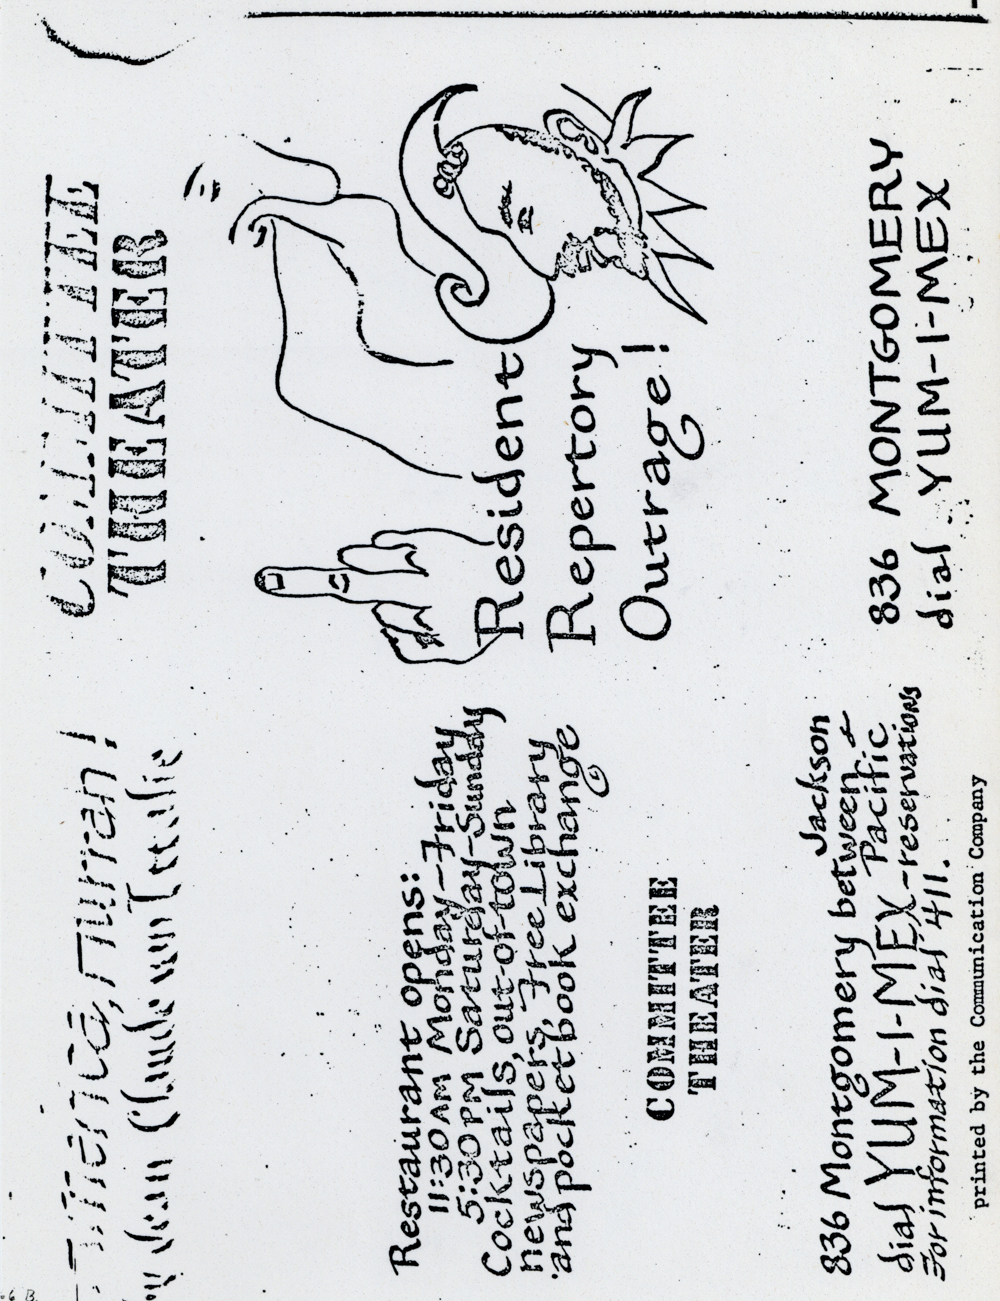 America, Hurrah!
by Jean Claude van Itallie
Restaurant opens:
11:30 AM Monday–Friday
5:30 PM Saturday–Sunday
Cocktails, out-of-town
newspapers, Free Library
and pocketbook exchange
COMMITTEE
THEATER
836 Montgomery between Jackson &
Pacific
dial YUM-I-MEX–reservations
For information dial 411.
printed by the Communication Company
COMMITTEE
THEATER
Resident
Repertory
Outrage!
836 MONTGOMERY
dial YUM-I-MEX